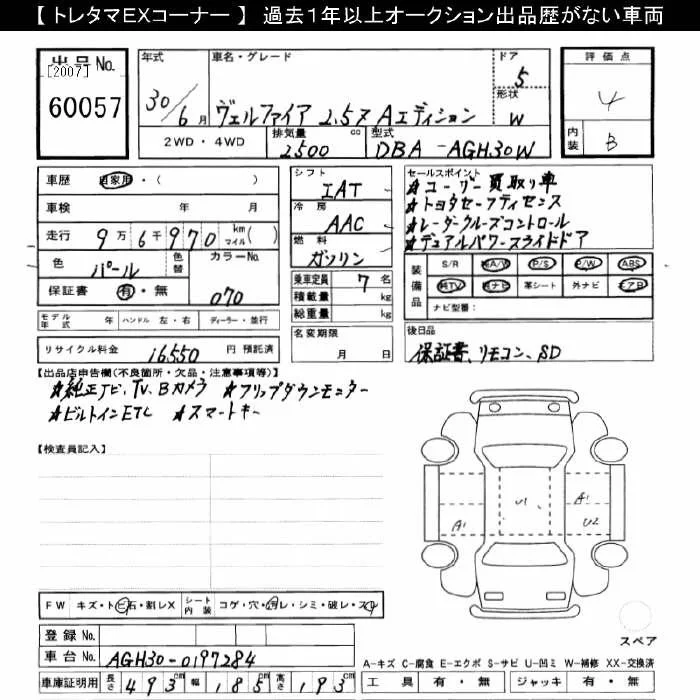 【 トレタマEXコーナー 】 過去1年以上オークション出品歴がない車両
出品No.
[2007]
60057
年式 車名・グレード ドア
30/6月 ヴェルファイア 2.5Z Aエディション 5
形状
W
2WD・4WD 排気量 cc 型式
2500 DBA-AGH30W
評価点
4
内装 B
車歴 自家用・( )
車検 年 月
走行 9万6千970 km マイル( )
色 パール 色替 カラーNo.
保証書 有・無 070
シフト IAT
冷房 AAC
燃料 ガソリン
乗車定員 7名
積載量 kg
総重量 kg
セールスポイント
★ユーザー買取り車
★トヨタセーフティセンス
★レーダークルーズコントロール
★デュアルパワースライドドア
装備品 S/R A/W P/S P/W ABS
純TV 純ナビ 革シート 外ナビ エアB
ナビ型番:
モデル年式 年 ハンドル 左・右 ディーラー・並行
名変期限
月 日
リサイクル料金 16,550 円 預託済
後日品
保証書、リモコン、SD
【出品店申告欄(不良箇所・欠品・注意事項等)】
★純正ナビ、TV、Bカメラ ★フリップダウンモニター
★ビルトインETC ★スマートキー
【検査員記入】
U1
A1
A1
U2
FW キズ・トビ石・割レX シート内装 コゲ・穴・汚レ・シミ・破レ・スレ
登録 No.
車台 No. AGH30-0197284
スペア
A-キズ C-腐食 E-エクボ S-サビ U-凹ミ W-補修 XX-交換済
車庫証明用 長さ 493cm 幅 185cm 高さ 193cm
工具 有・無 ジャッキ 有・無